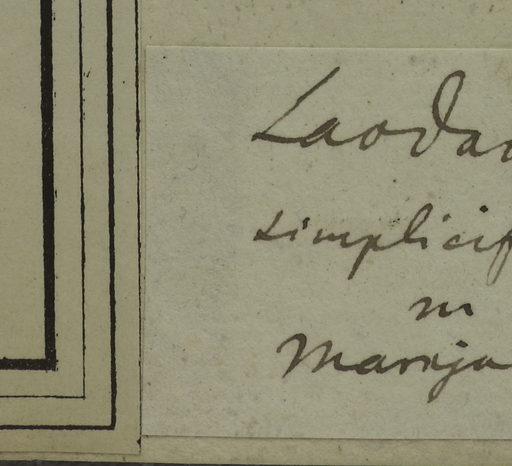 Laoda
simplicif
m
Marija